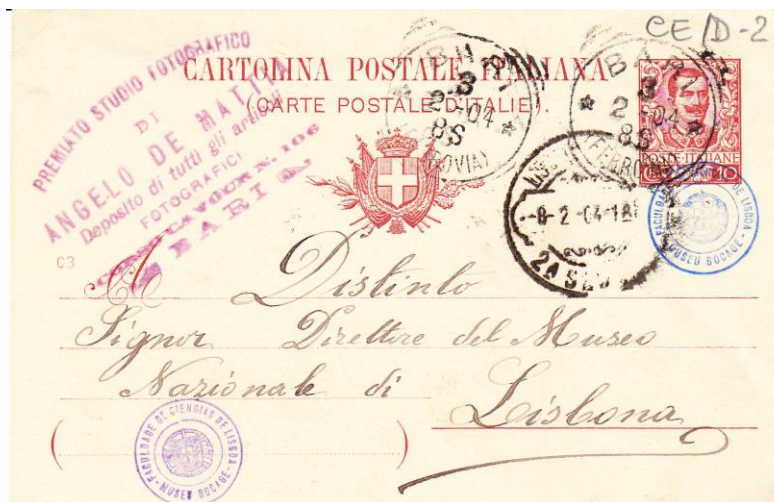 CE/D-2
CARTOLINA POSTALE ITALIANA
(CARTE POSTALE D'ITALIE).
PREMIATO STUDIO FOTOGRAFICO
DI
ANGELO DE MATTIA
Deposito di tutti gli articoli
FOTOGRAFICI
CORSO CAVOUR N. 106
BARI
BARI
3
2-04
8S
BARI
3
2-04
8S
(FERRO
POSTE·ITALIANE
10
-8-2-04-
2A SEC
FACULDADE DE CIENCIAS DE LISBOA
MUSEU BOCAGE
03
A Distinto
Signor Direttore del Museo
Nazionale di
Lisbona
FACULDADE DE CIENCIAS DE LISBOA
MUSEU BOCAGE